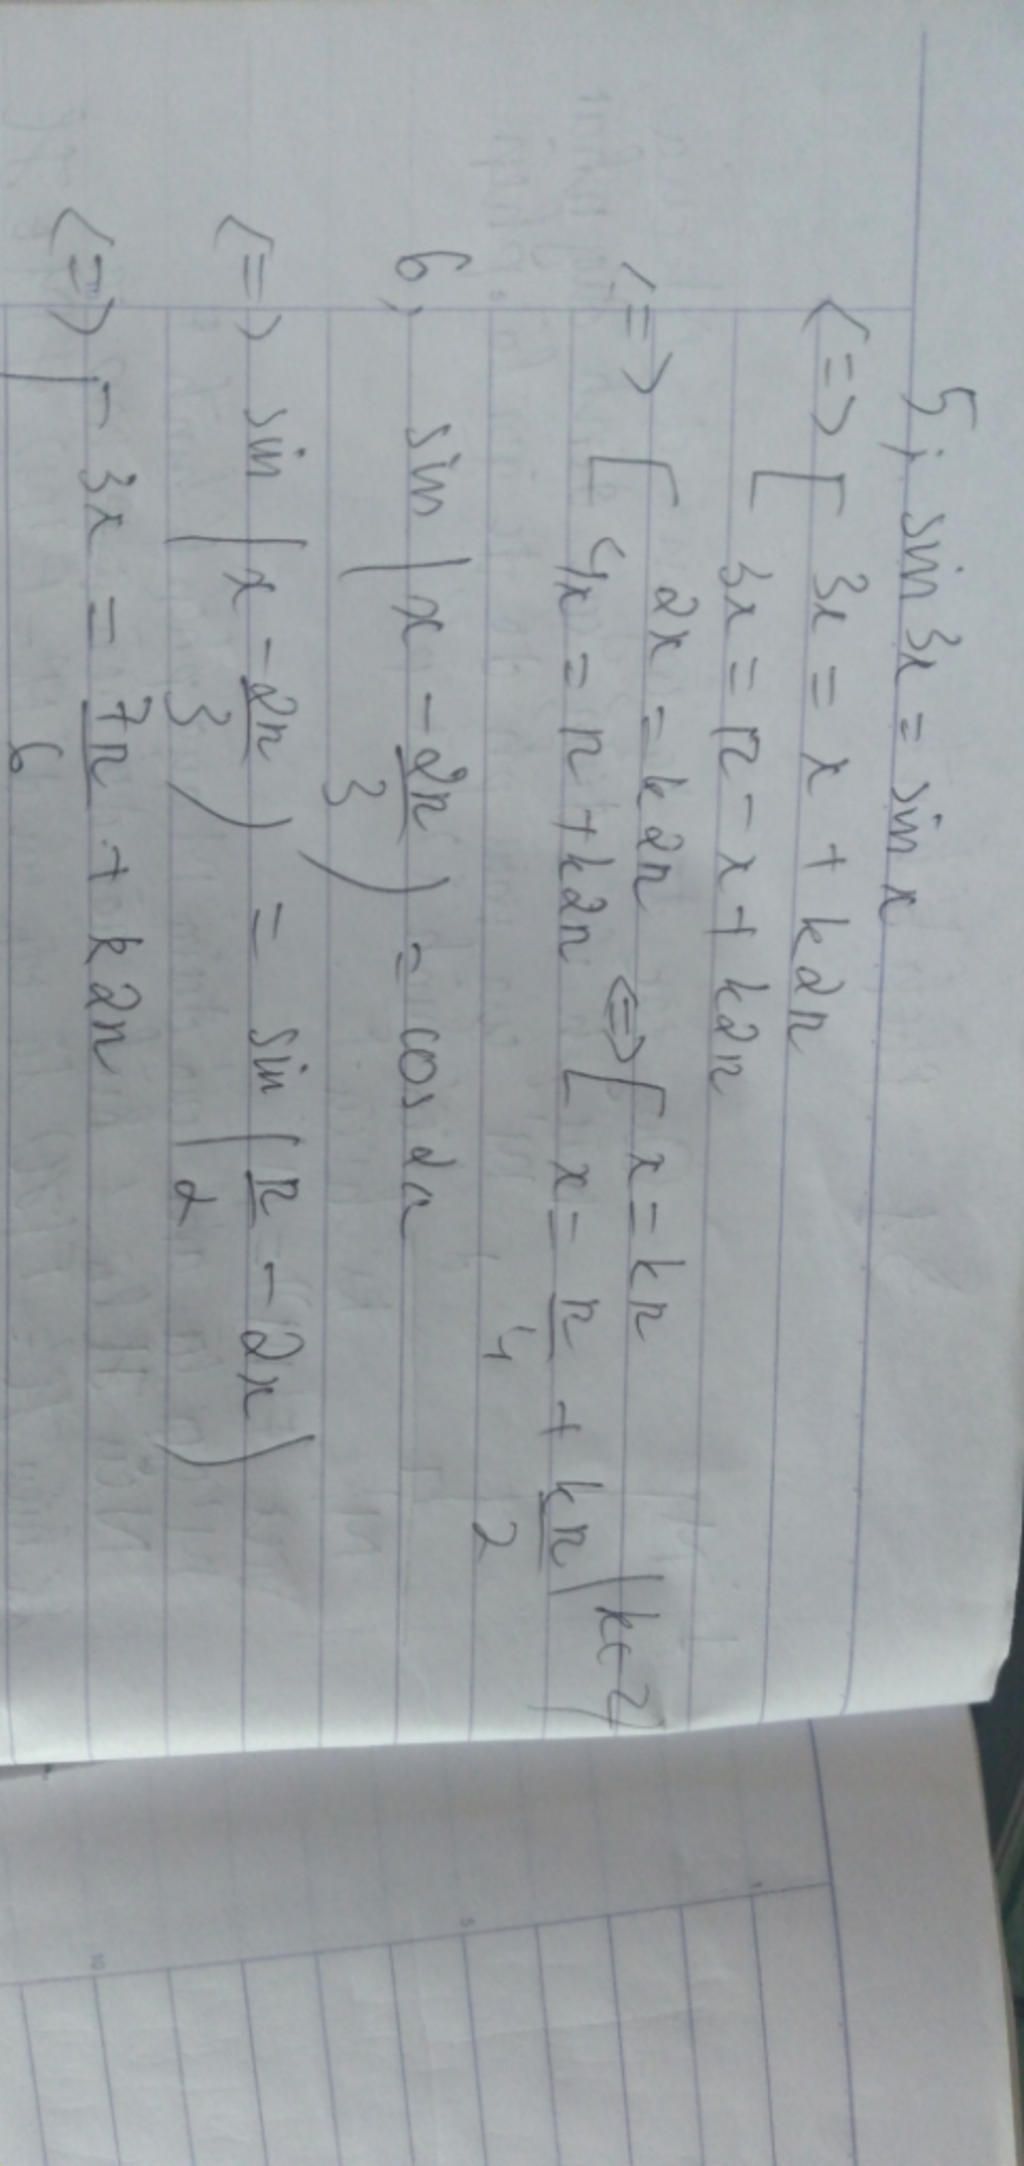 5, sin 3x = sin x
<=> [ 3x = x + k2π
3x = π - x + k2π
<=> [ 2x = k2π <=> [ x = kπ
4x = π + k2π [ x = π/4 + kπ/2 (k∈Z)
6, sin (x - 2π/3) = cos 2x
<=> sin (x - 2π/3) = sin (π/2 - 2x)
<=> [ 3x = 7π/6 + k2π